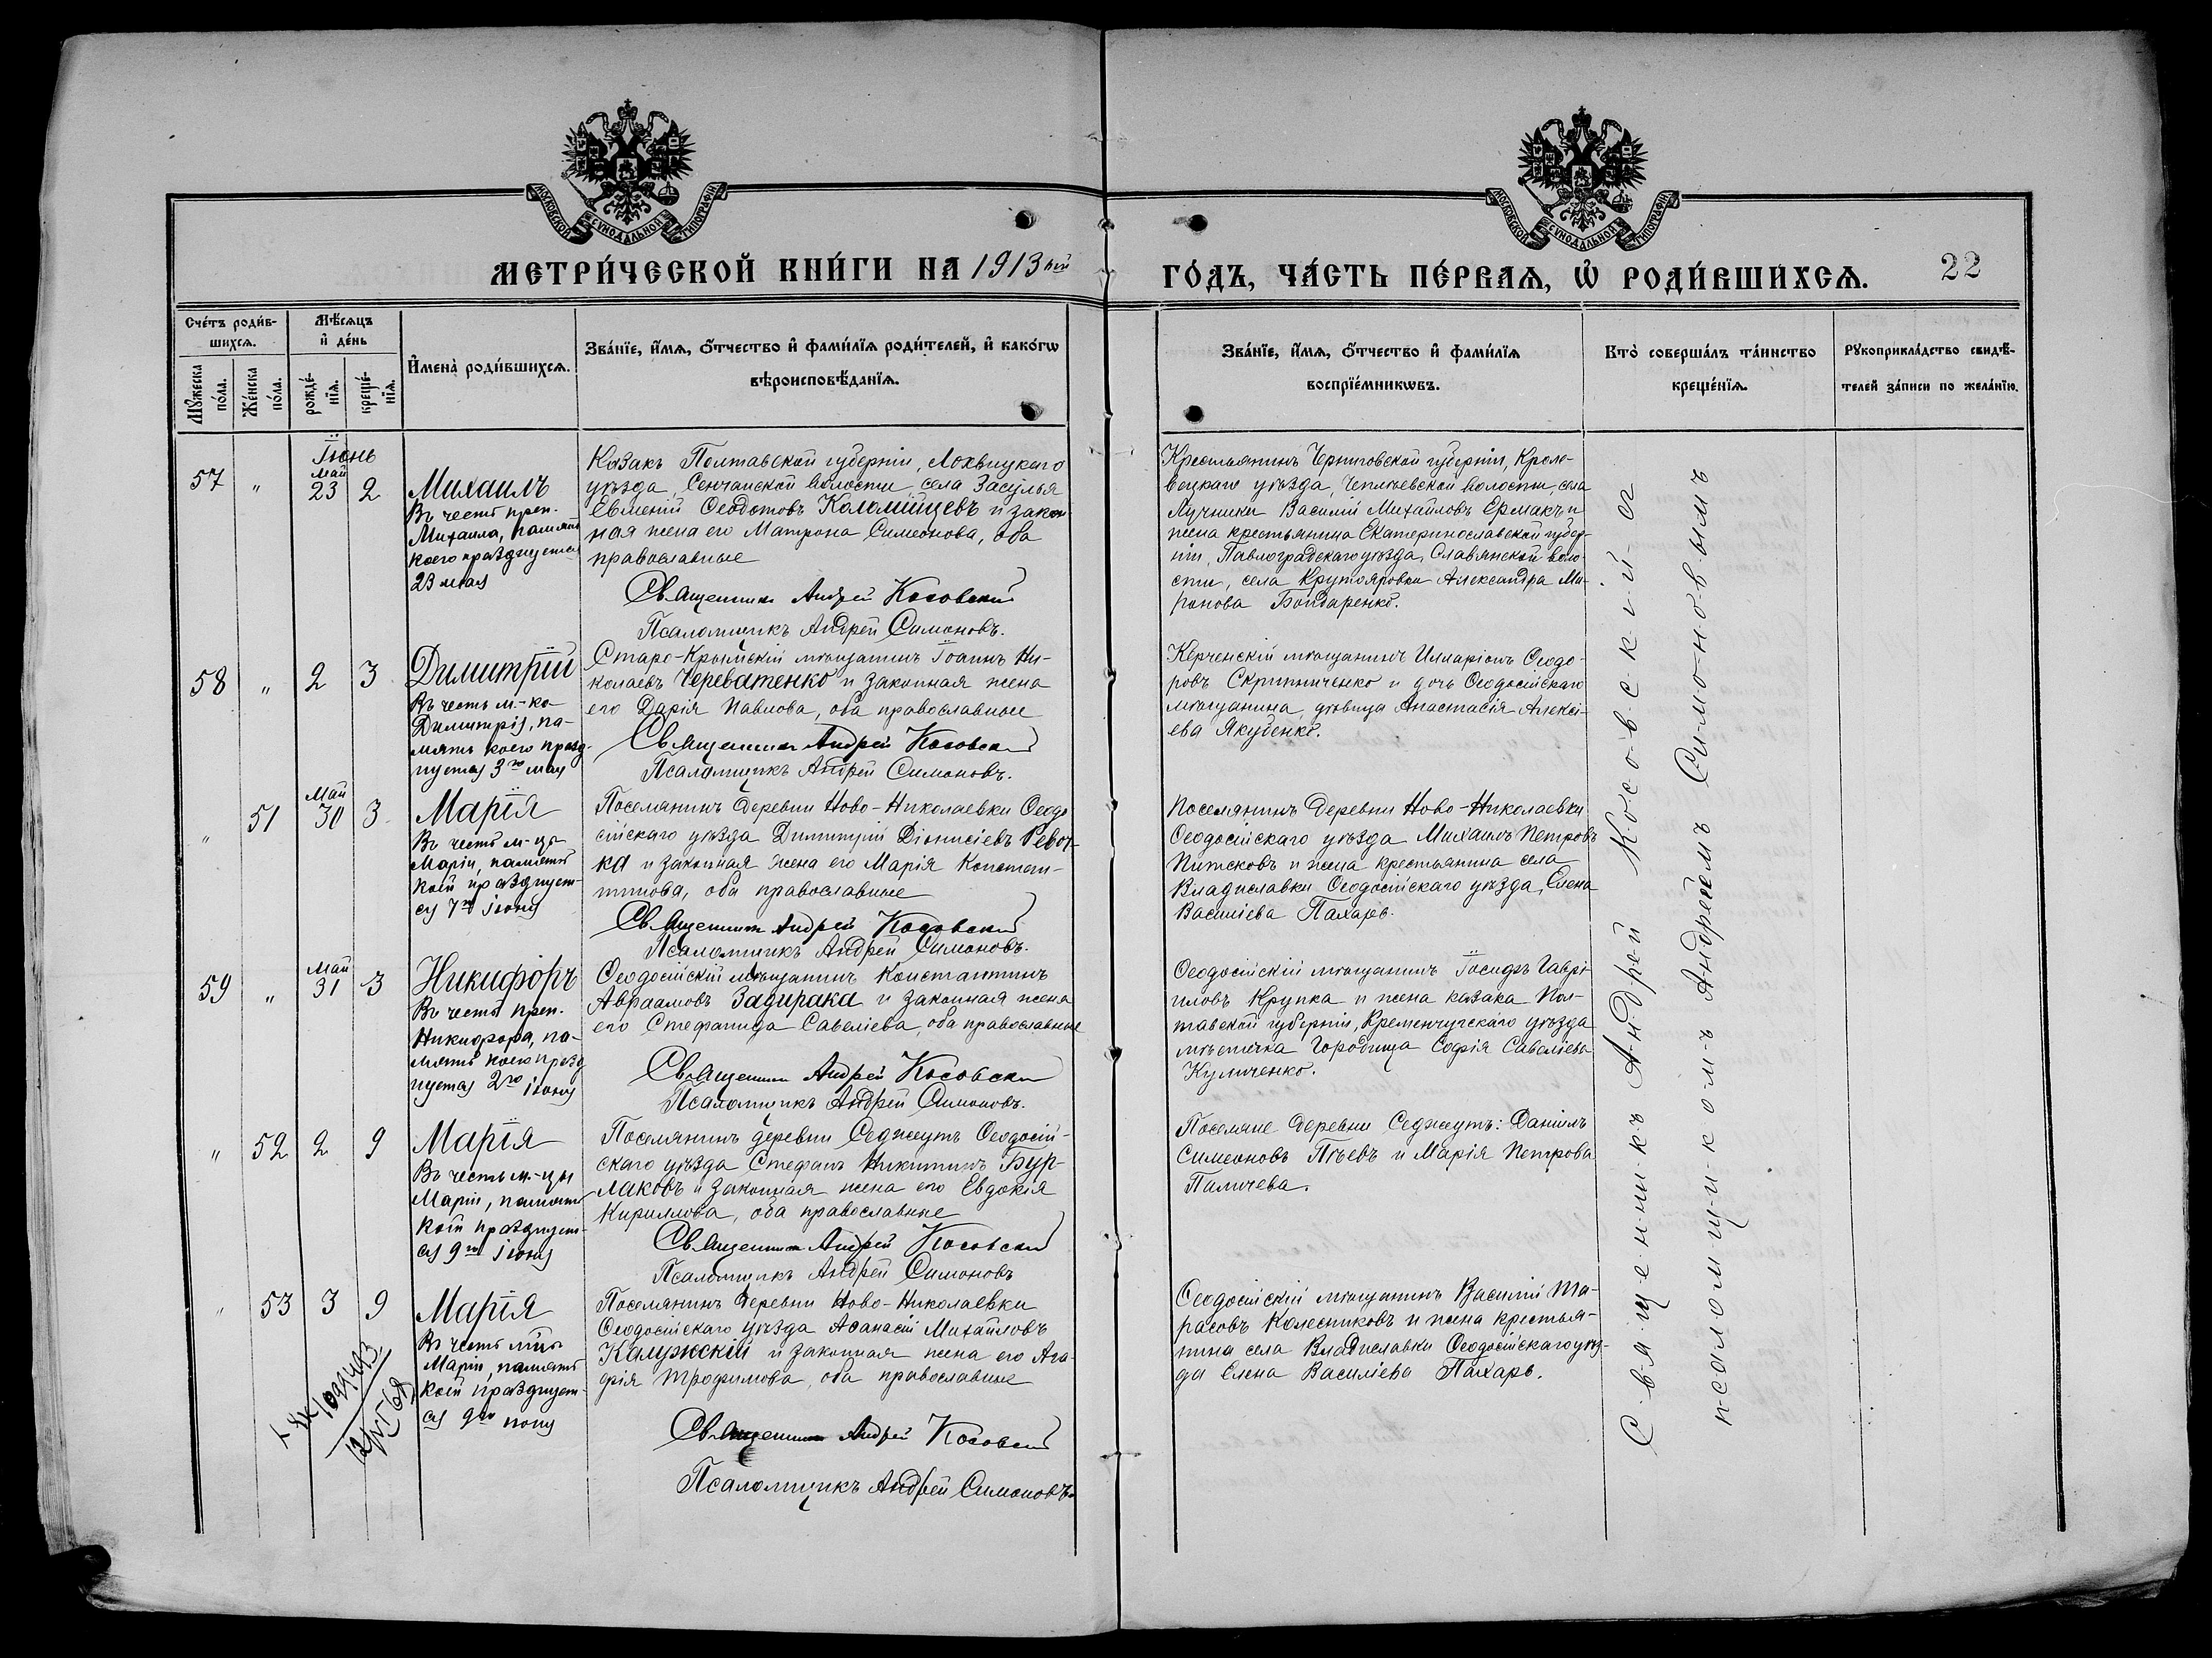 МОСКОВСКОЙ СѴНОДАЛЬНОЙ ТИПОГРАФІИ
МОСКОВСКОЙ СѴНОДАЛЬНОЙ ТИПОГРАФІИ
МЕТРИ́ЧЕСКОЙ КНИ́ГИ НА 1913 ый
ГО́ДЪ, ЧА́СТЬ ПЕ́РВАѦ, Ѡ҆ РОДИ́ВШИХСѦ.
22
Сче́тъ роди́в-
шихсѧ.
Мꙋжеска
по́ла.
Же́нска
по́ла.
Мѣ́сѧцъ
и҆ де́нь
рожде́-
нїѧ.
креще́-
нїѧ.
И҆мена̀ роди́вшихсѧ.
Зва́нїе, и҆́мѧ, ѻ҆́тчество и҆ фами́лїѧ роди́телей, и҆ како́гѡ
вѣроисповѣ́данїѧ.
Зва́нїе, и҆́мѧ, ѻ҆́тчество и҆ фами́лїѧ
воспрїе́мникѡвъ.
Кто̀ соверша́лъ та́инство
креще́нїѧ.
Рꙋкоприкла́дство свидѣ́-
телей за́писи по жела́нїю.
Іюнь
57
"
май
23
2
Михаилъ
Въ честь преп.
Михаила, память
коего празднуется
23 мая
Казакъ Полтавской губерніи, Лохвицкаго
уѣзда, Сенчанской волости, села Засулья
Евменій Ѳеодотовъ Коломійцевъ и закон
ная жена его Матрона Симеонова, оба
православные
Священникъ Андрей Косовский
Псаломщикъ Андрей Симоновъ.
Крестьянинъ Черниговской губерніи, Кроле-
вецкаго уѣзда, Чеплѣевской волости, села
Лучники Василій Михайловъ Ермакъ и
жена крестьянина Екатеринославской губер-
ніи, Павлоградскаго уѣзда, Славянской воло-
сти, села Крутояровки Александра Ми-
ронова Бондаренко.
58
"
2
3
Димитрій
Въ честь м-ка
Димитрія, па-
мять коего празд-
нуется 3го мая
Старо-Крымскій мѣщанинъ Іоаннъ Ни-
колаевъ Череватенко и законная жена
его Дарія Павлова, оба православные
Священникъ Андрей Косовский
Псаломщикъ Андрей Симоновъ.
Керченскій мѣщанинъ Илларіонъ Ѳеодо-
ровъ Скрипниченко и дочь Ѳеодосійскаго
мѣщанина, дѣвица Анастасія Алексі-
ева Якубенко.
"
51
Май
30
3
Марія
Въ честь м-цы
Маріи, память
коей празднует-
ся 7го іюня
Поселянинъ деревни Ново-Николаевки Ѳеодо
сійскаго уѣзда Димитрій Діонисіевъ Ревот-
ка и законная жена его Марія Констан-
тинова, оба православные
Священникъ Андрей Косовский
Псаломщикъ Андрей Симоновъ.
Поселянинъ деревни Ново-Николаевки
Ѳеодосійскаго уѣзда Михаилъ Петровъ
и жена крестьянина села
Владиславки Ѳеодосійскаго уѣзда, Елена
Василіева Пахарь.
59
"
Май
31
3
Никифоръ
Въ честь преп.
Никифора, па-
мять коего празд
нуется 2го іюня
Ѳеодосійскій мѣщанинъ Константинъ
Авраамовъ Задирака и законная жена
его Стефанида Савеліева, оба православные
Священникъ Андрей Косовский
Псаломщикъ Андрей Симоновъ.
Ѳеодосійскій мѣщанинъ Іосифъ Гаврі-
иловъ Крупка и жена казака Пол-
тавской губерніи, Кременчугскаго уѣзда
мѣстечка Городища Софія Савеліева
Куличенко.
"
52
2
9
Марія
Въ честь м.-цы
Маріи, память
коей празднует-
ся 9го іюня
Поселянинъ деревни Седжеутъ Ѳеодосій-
скаго уѣзда Стефанъ Никитинъ Бур-
лаковъ и законная жена его Евдокія
Кириллова, оба православные
Священникъ Андрей Косовский
Псаломщикъ Андрей Симоновъ
Поселяне деревни Седжеутъ: Даніилъ
Симеоновъ и Марія Петрова
Паличева.
"
53
3
9
Марія
Въ честь м-цы
Маріи, память
коей празднует-
ся 9го іюня
Поселянинъ деревни Ново-Николаевки
Ѳеодосійскаго уѣзда Аѳанасій Михайловъ
Калужскій и законная жена его Ага-
фія Трофимова, оба православные
Священникъ Андрей Косовский
Псаломщикъ Андрей Симоновъ
Ѳеодосійскій мѣщанинъ Василій Та-
расовъ Колесниковъ и жена крестья-
нина села Владиславки Ѳеодосійскаго уѣз-
да Елена Василіева Пахарь.
Священникъ Андрей Косовскій с
псаломщикомъ Андреемъ Симоновымъ